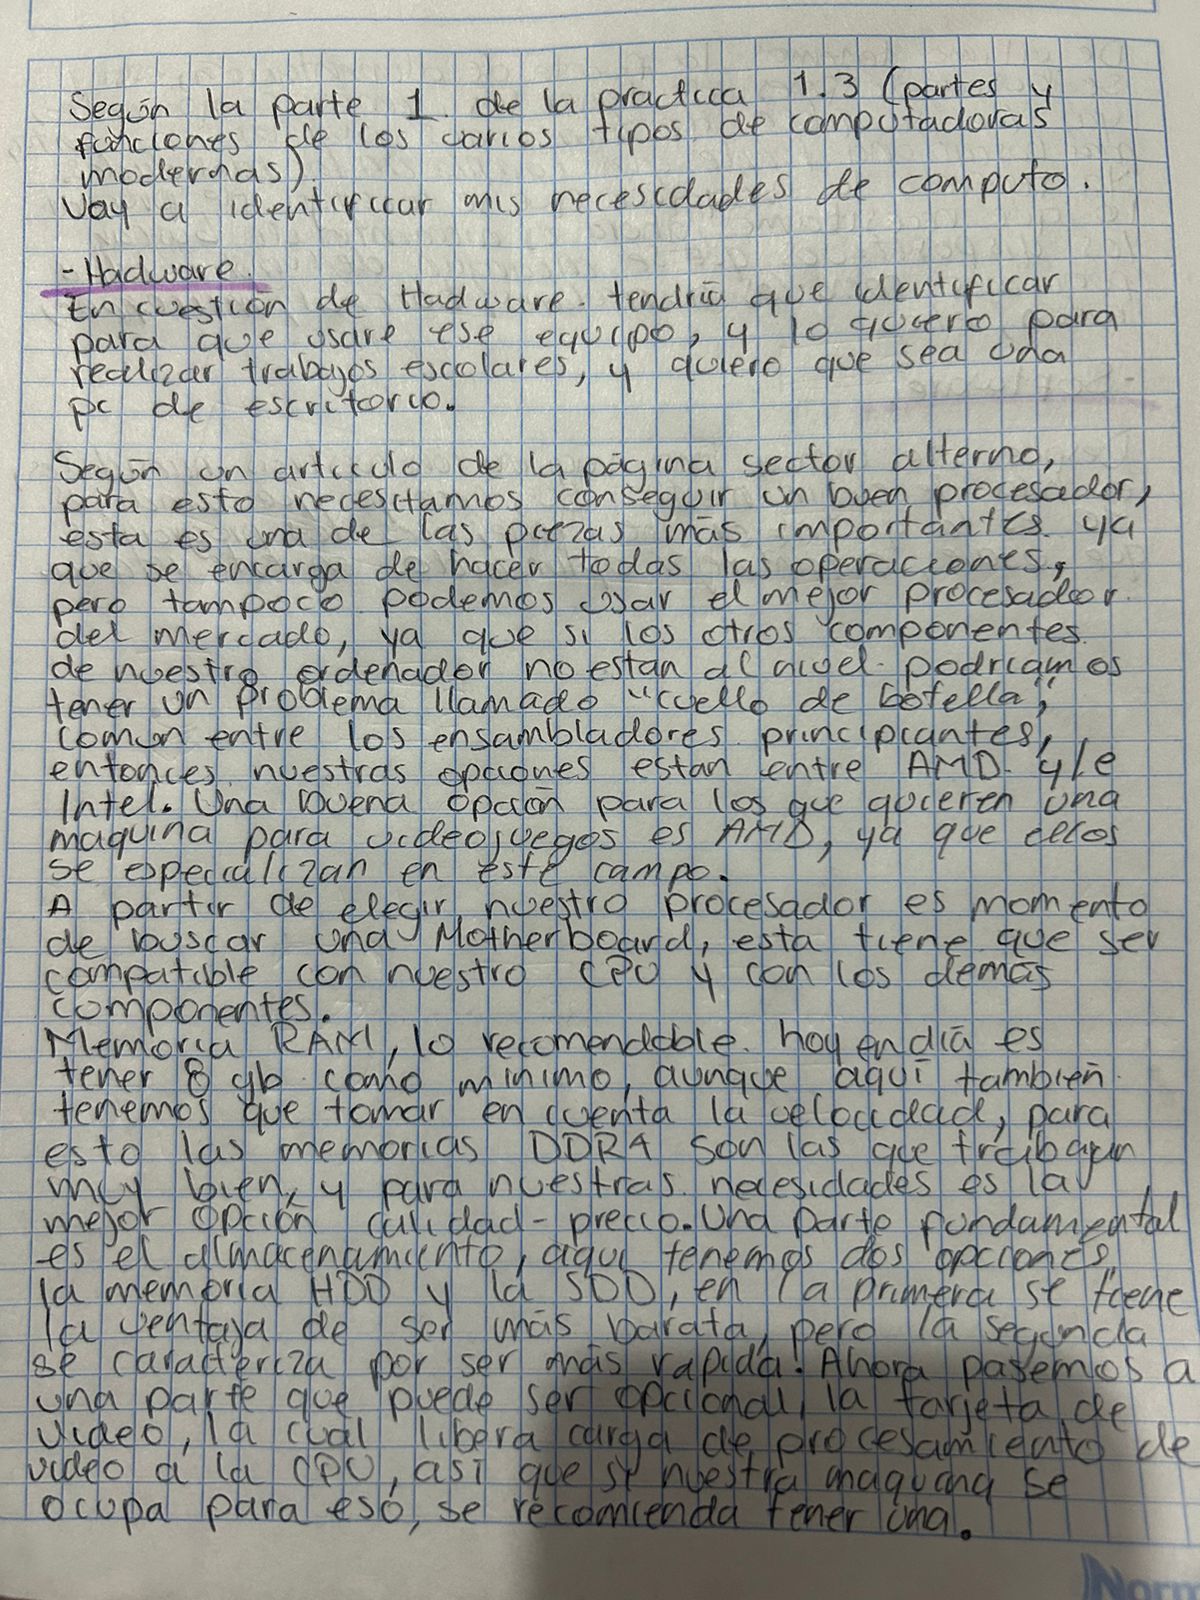 Según la parte 1 de la practica 1.3 (partes y
funciones de los varios tipos de computadoras
modernas)
Voy a identificar mis necesidades de computo.
- Hadware.
En cuestión de Hadware. tendría que identificar
para que usare ese equipo, y lo quiero para
realizar trabajos escolares, y quiero que sea una
pc de escritorio.
Según un articulo de la página sector alterno,
para esto necesitamos conseguir un buen procesador,
esta es una de las piezas más importantes ya
que se encarga de hacer todas las operaciones,
pero tampoco podemos usar el mejor procesador
del mercado, ya que si los otros componentes
de nuestro ordenador no estan al nivel podriamos
tener un problema llamado "cuello de botella",
comun entre los ensambladores principiantes,
entonces nuestras opciones estan entre AMD y/e
Intel. Una buena opción para los que quieren una
maquina para videojuegos es AMD, ya que ellos
se especializan en este campo.
A partir de elegir nuestro procesador es momento
de buscar una Motherboard, esta tiene que ser
compatible con nuestro CPU y con los demás
componentes.
Memoria RAM, lo recomendable hoy en día es
tener 8 gb como minimo, aunque aquí también
tenemos que tomar en cuenta la velocidad, para
esto las memorias DDR4 son las que trabajan
muy bien, y para nuestras necesidades es la
mejor opción calidad-precio. Una parte fundamental
es el almacenamiento, aqui tenemos dos opciones,
la memoria HDD y la SDD, en la primera se tiene
la ventaja de ser más barata, pero la segunda
se caracteriza por ser más rapida. Ahora pasemos a
una parte que puede ser opcional, la tarjeta de
video, la cual libera carga de procesamiento de
video a la CPU, así que si nuestra maquina se
ocupa para eso, se recomienda tener una.
Norm